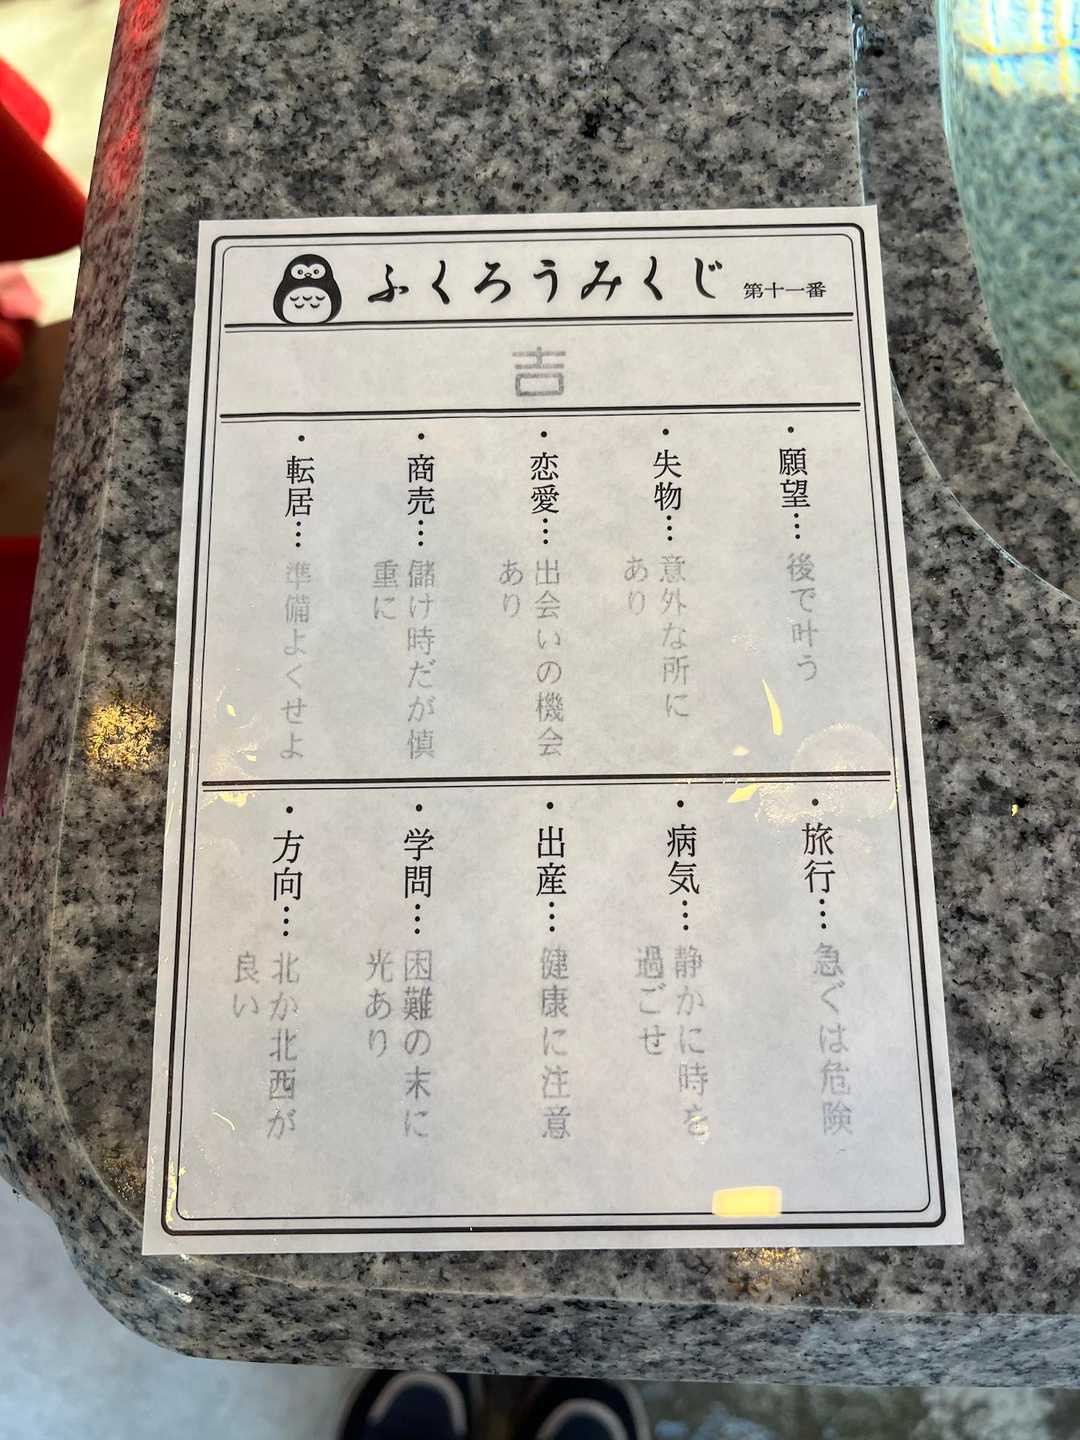 ふくろうみくじ 第十一番
吉
・願望… 後で叶う
・失物… 意外な所に
あり
・恋愛… 出会いの機会
あり
・商売… 儲け時だが慎
重に
・転居… 準備よくせよ
・旅行… 急ぐは危険
・病気… 静かに時を
過ごせ
・出産… 健康に注意
・学問… 困難の末に
光あり
・方向… 北か北西が
良い